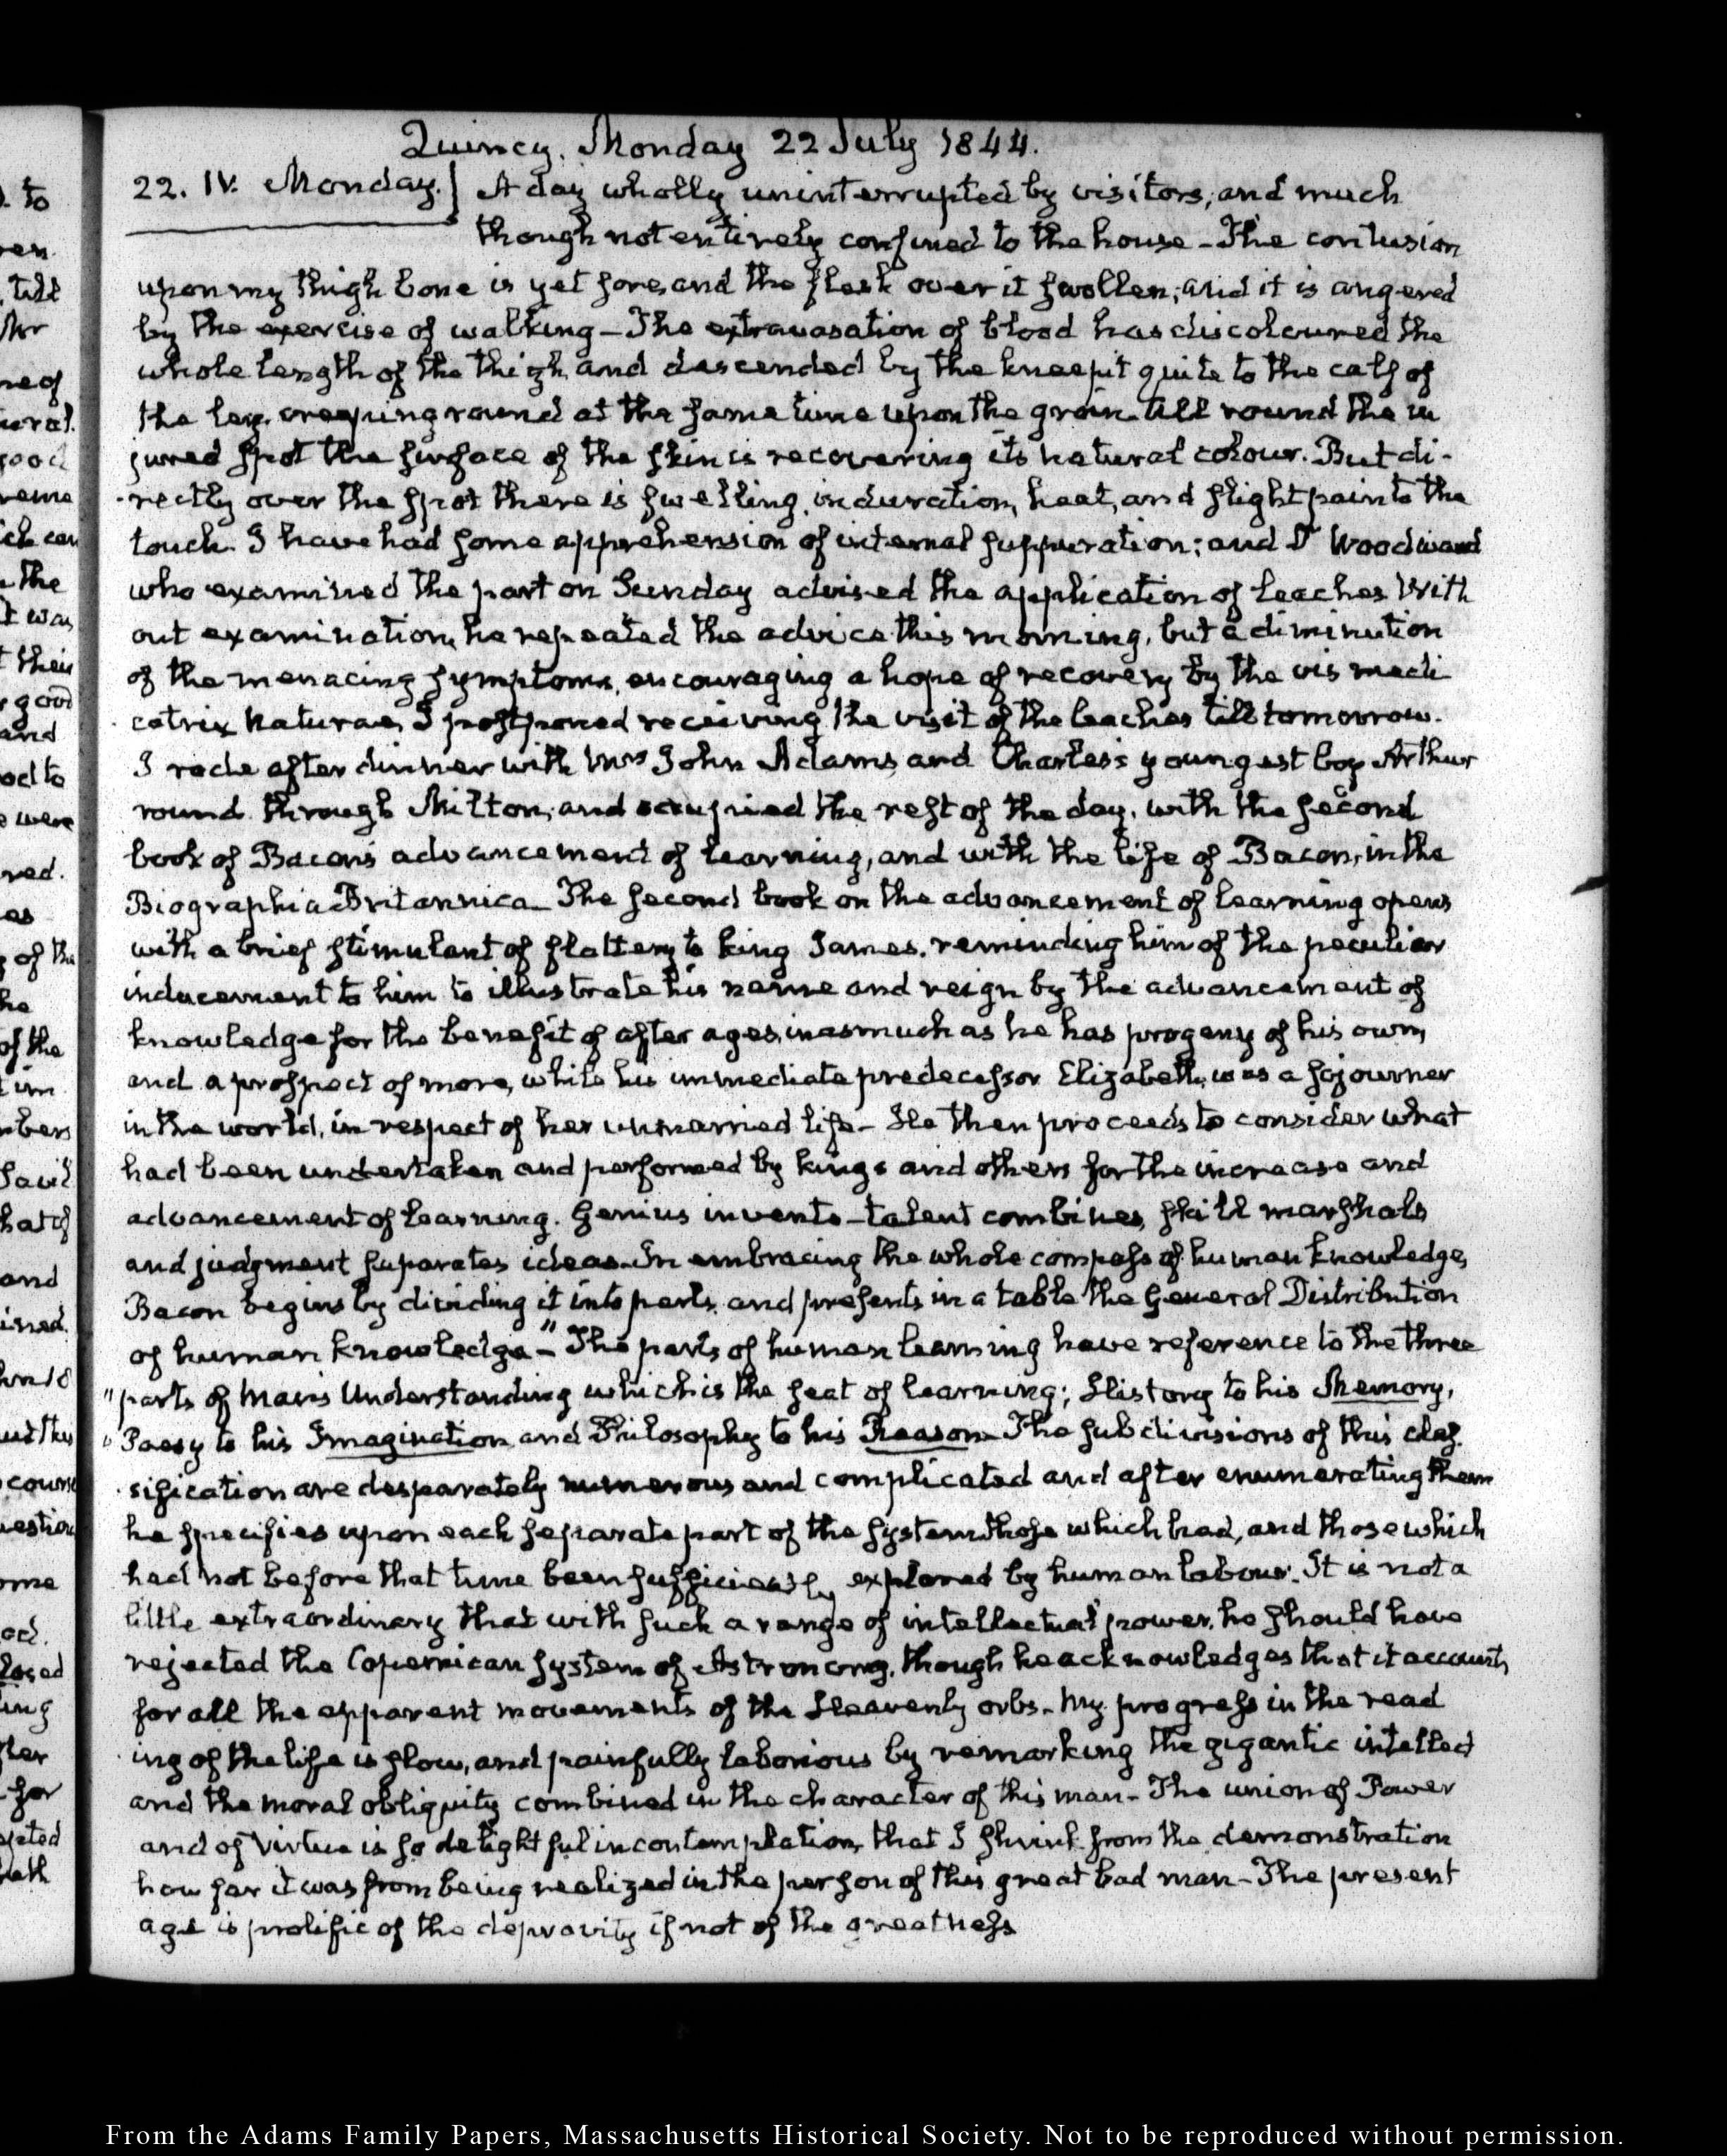 Quincy. Monday 22 July 1844.
22. IV. Monday. A day wholly uninterrupted by visitors, and much
though not entirely confined to the house - The contusion
upon my thigh bone is yet sore, and the flesh over it swollen; and it is angered
by the exercise of walking - The extravasation of blood has discoloured the
whole length of the thigh, and descended by the kneepit quite to the calf of
the leg, creeping round at the same time upon the groin. All round the in
jured spot the surface of the skin is recovering its natural colour. But di-
rectly over the spot there is swelling, induration, heat, and slight pain to the
touch. I have had some apprehension of internal suppuration; and Dr Woodward
who examined the part on Sunday advised the application of leaches With
out examination, he repeated the advice this morning, but a diminution
of the menacing symptoms, encouraging a hope of recovery by the vis medi
catrix Naturae, I postponed receiving the visit of the leaches till tomorrow.
I rode after dinner with Mrs John Adams, and Charles's youngest boy Arthur
round through Milton, and occupied the rest of the day, with the second
book of Bacon's advancement of learning, and with the life of Bacon, in the
Biographia Britannica - The second book on the advancement of learning opens
with a brief stimulant of flattery to king James, reminding him of the peculiar
inducement to him to illustrate his name and reign by the advancement of
knowledge for the benefit of after ages, inasmuch as he has progeny of his own,
and a prospect of more, while his immediate predecessor Elizabeth, was a sojourner
in the world, in respect of her unmarried life - He then proceeds to consider what
had been undertaken and performed by kings and others for the increase and
advancement of learning. Genius invents - talent combines, skill marshals
and judgment separates ideas - In embracing the whole compass of human knowledge,
Bacon begins by dividing it into parts, and presents in a table the General Distribution
of human knowledge - "The parts of human learning have reference to the three
"parts of Man's Understanding which is the seat of learning; History to his Memory,
"Poesy to his Imagination, and Philosophy to his Reason - The subdivisions of this clas-
sification are desperately numerous and complicated and after enumerating them
he specifies upon each separate part of the system those which had, and those which
had not before that time been sufficiently explored by human labour. It is not a
little extraordinary that with such a range of intellectual power, he should have
rejected the Copernican system of Astronomy, though he acknowledges that it accounts
for all the apparent movements of the Heavenly orbs - My progress in the read
ing of the life is slow, and painfully laborious by remarking the gigantic intellect
and the moral obliquity combined in the character of this man - The union of Power
and of Virtue is so delightful in contemplation, that I shrink from the demonstration
how far it was from being realized in the person of this great bad man - The present
age is prolific of the depravity if not of the greatness
From the Adams Family Papers, Massachusetts Historical Society. Not to be reproduced without permission.